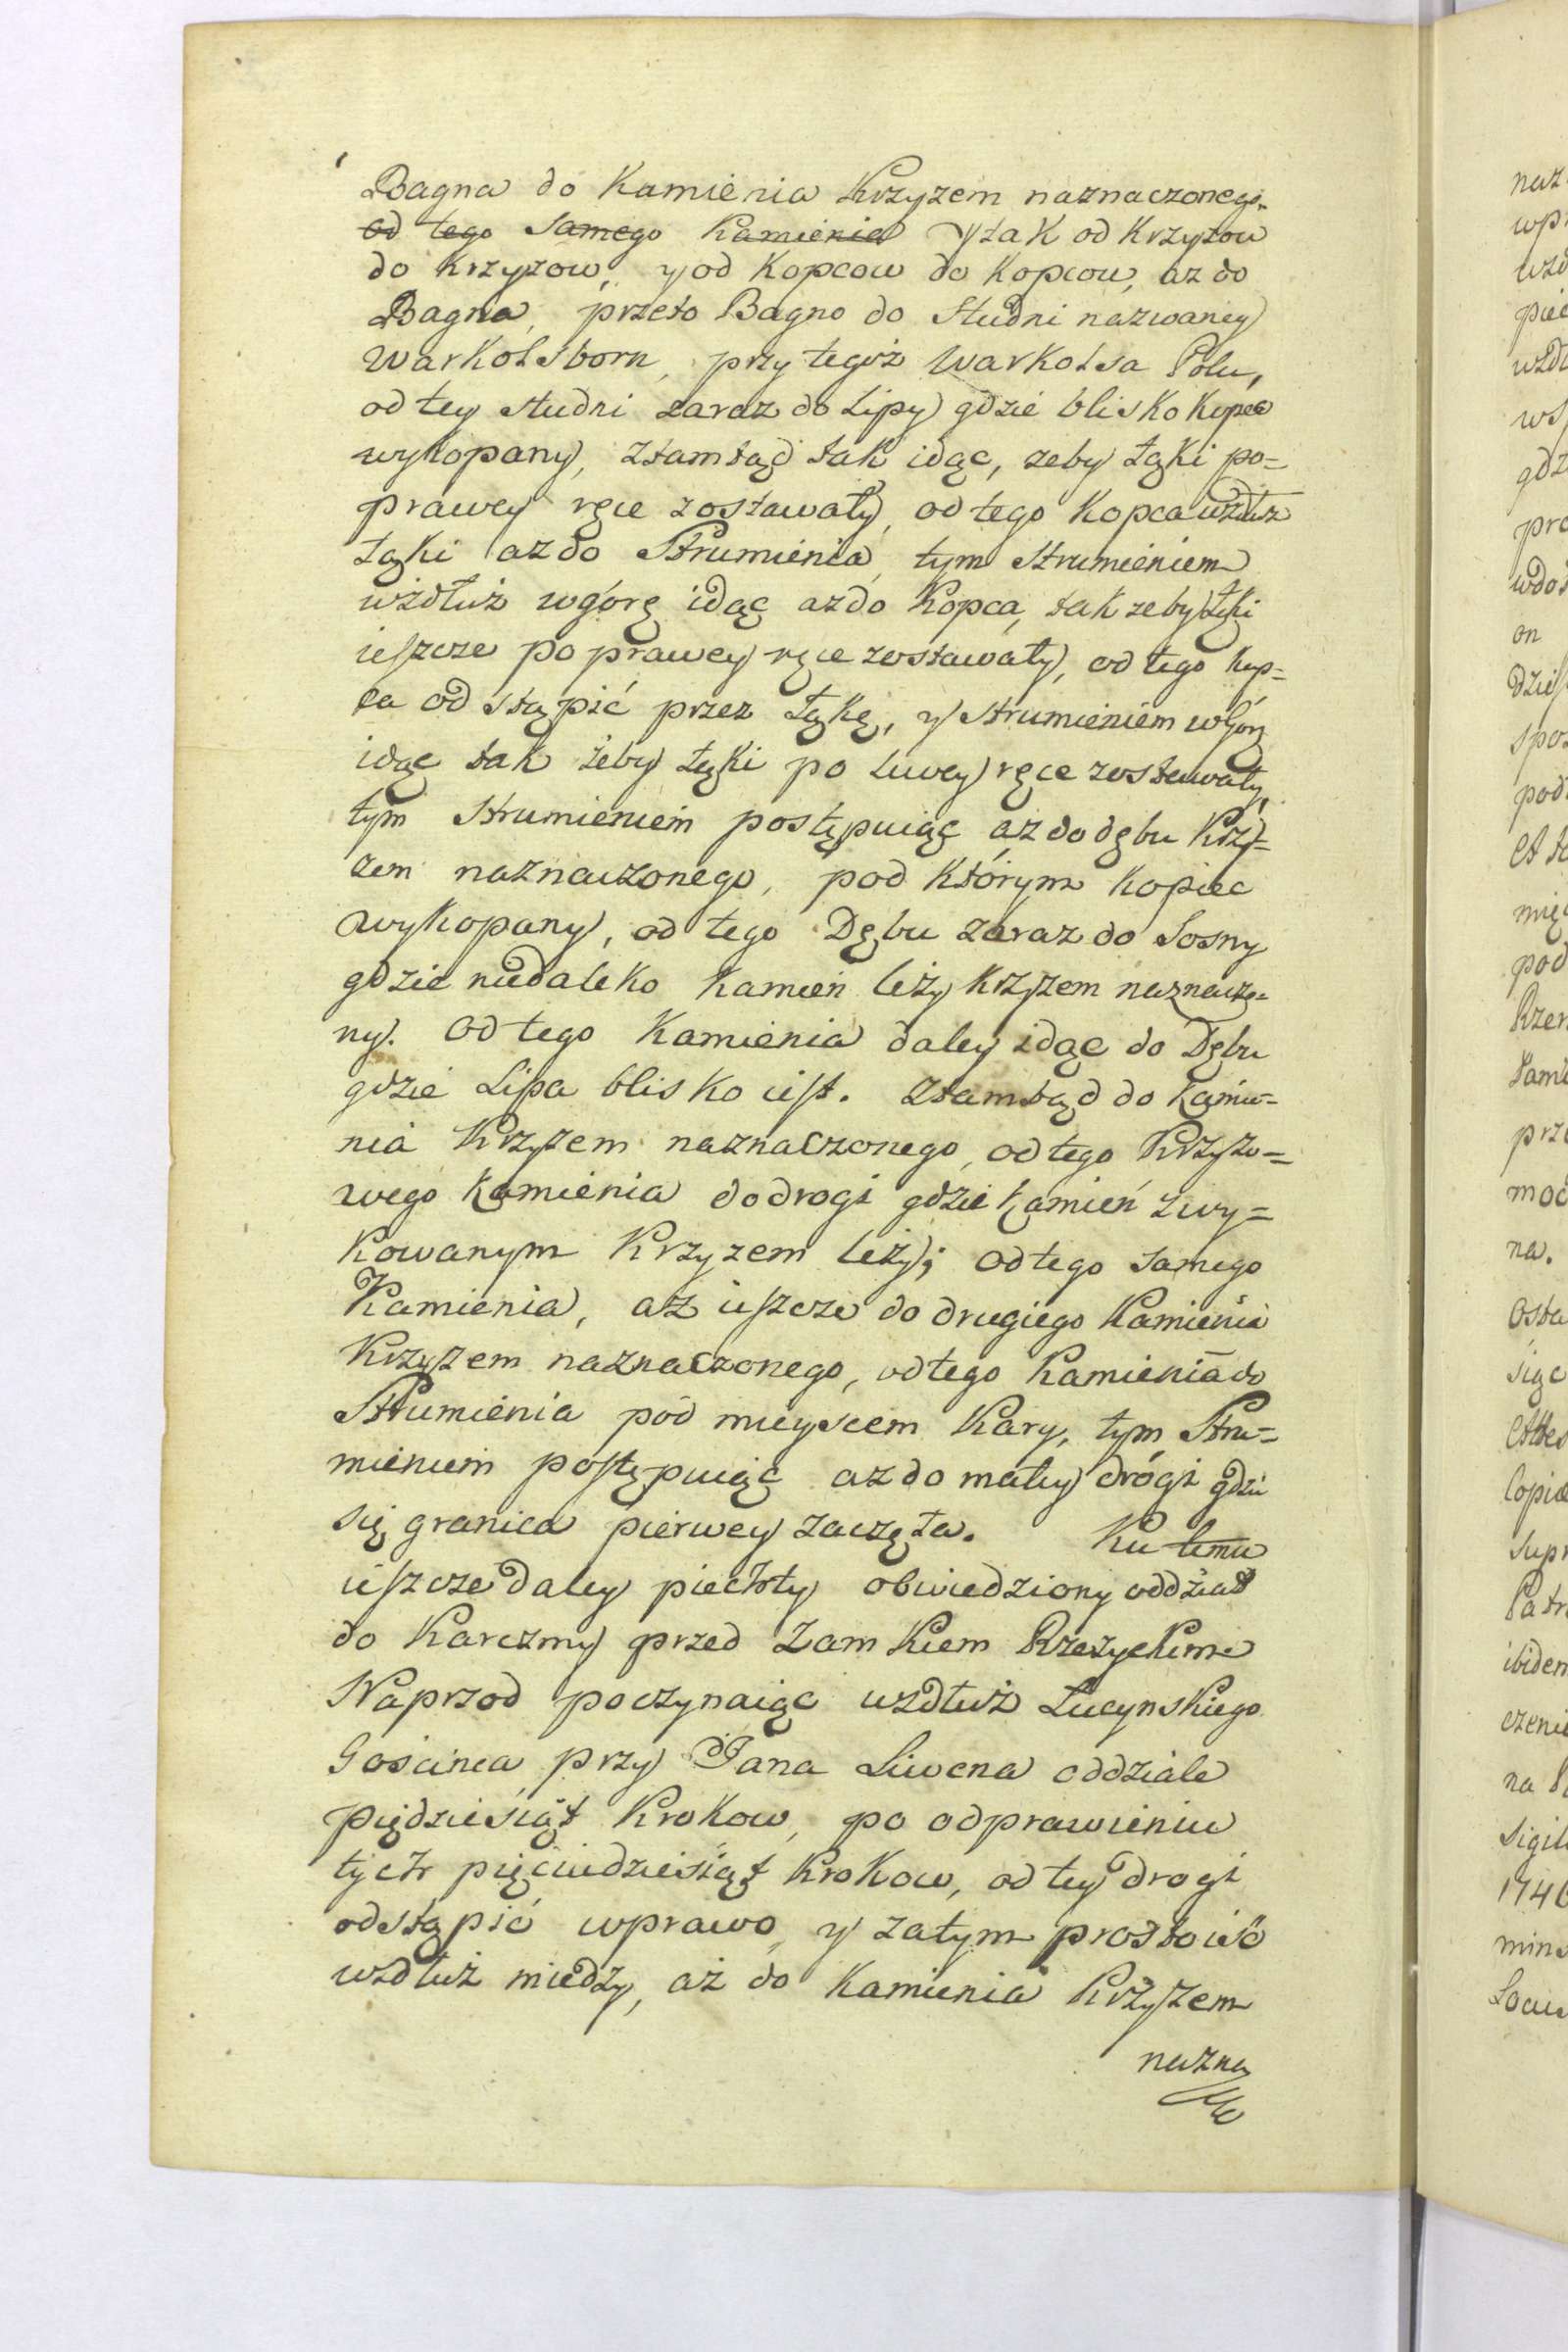 Bagna do Kamienia Krzyzem naznaczonego.
od tego samego Kamienia y tak od Krzyzow
do Krzyzow, y od Kopcow do Kopcow, az do
Bagna, przeto Bagno do Studni nazwaney
Warkolsborn, przy tegoż Warkolsa Polu,
od tey studni zaraz do Lipy gdzie blisko Kopec
wykopany, ztamtąd tak idąc, zeby łąki po=
prawey ręce zostawały, od tego Kopca wzdłuż
łąki az do Strumienia, tym Strumieniem
wżdłuż wgórę idąc az do Kopca, tak zeby łęki
ieszcze po prawey ręce zostawały, od tego kop=
ca odstąpić przez łąkę, y strumieniem wgórę
idąc tak żeby łęki po lewey ręce zostawały,
tym Strumieniem postępuiąc aż do dębu Krzy=
zem naznaczonego, pod którym Kopiec
wykopany, od tego Dębu zaraz do Sosny
gdzie niedaleko Kamień leży krzyzem naznaczo=
ny. Od tego Kamienia daley idąc do Dębu
gdzie Lipa blisko iest. Ztamtąd do Kamie=
nia Krzyzem naznaczonego, od tego Krzyzo=
wego Kamienia do drogi gdzie kamień z wy=
kowanym Krzyzem leży; od tego samego
Kamienia, aż ieszcze do drugiego Kamienia
Krzyzem naznaczonego, od tego Kamienia do
Strumienia pod mieyscem Kary, tym Stru=
mieniem postępuiąc az do małey drógi gdzie
się granica pierwey zaczęta. Ku temu
ieszcze daley piechty obwiedziony oddział
do Karczmy przed Zamkiem Rzezyckim
Naprzod poczynaiąc wzdłuż Lucynskiego
Gościnca przy Jana Liwena oddziale
piędziesiąt Krokow, po odprawieniu
tych pięciudziesiąt Krokow, od tey drogi
odstąpić wprawo, y zatym prosto iść
wzdłuż miedzy, aż do Kamienia Krzyzem
nazna
naz
wp
wzd
pie
wzdł
ws
gdz
pra
wdo
on
dzies
spo
pod
et
mię
pod
Rzez
prz
moc
na.
Osta
siąc
Copia
Supr
Patr
ibidem
czeni
na
Sigil
1746
min
Locus